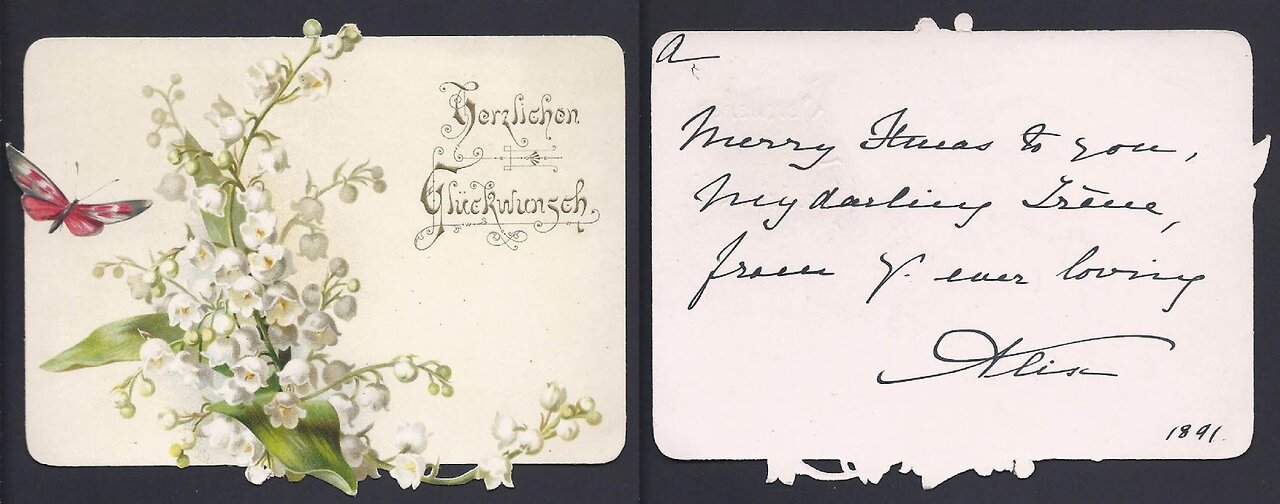 Herzlichen
Glückwunsch.
a
Merry Xmas to you,
My darling Irène,
from y. ever loving
Alix
1891.